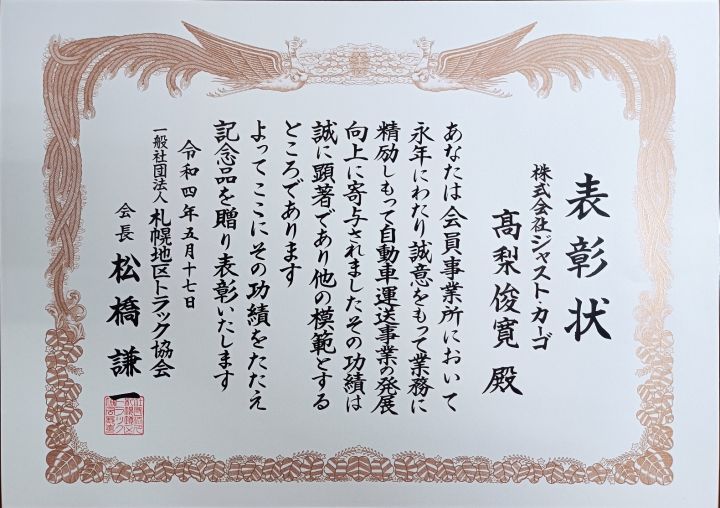 表彰状
株式会社ジャスト・カーゴ
髙梨俊寛 殿
あなたは会員事業所において
永年にわたり誠意をもって業務に
精励しもって自動車運送事業の発展
向上に寄与されましたその功績は
誠に顕著であり他の模範とする
ところであります
よってここにその功績をたたえ
記念品を贈り表彰いたします
令和四年五月十七日
一般社団法人 札幌地区トラック協会
会長 松橋謙一